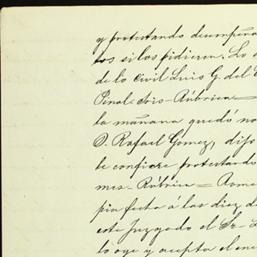 y protestando desempeña
tos si los pidieren. Lo
de lo Civil Luis G. del
Penal dris - Rúbrica =
la mañana quedó no
D. Rafael Gomez, dijo
le confiere protestando
mes - Rúbrica = Rome
pia fecha á las diez d
este Juzgado el Sr. L
lo oye y acepta el en